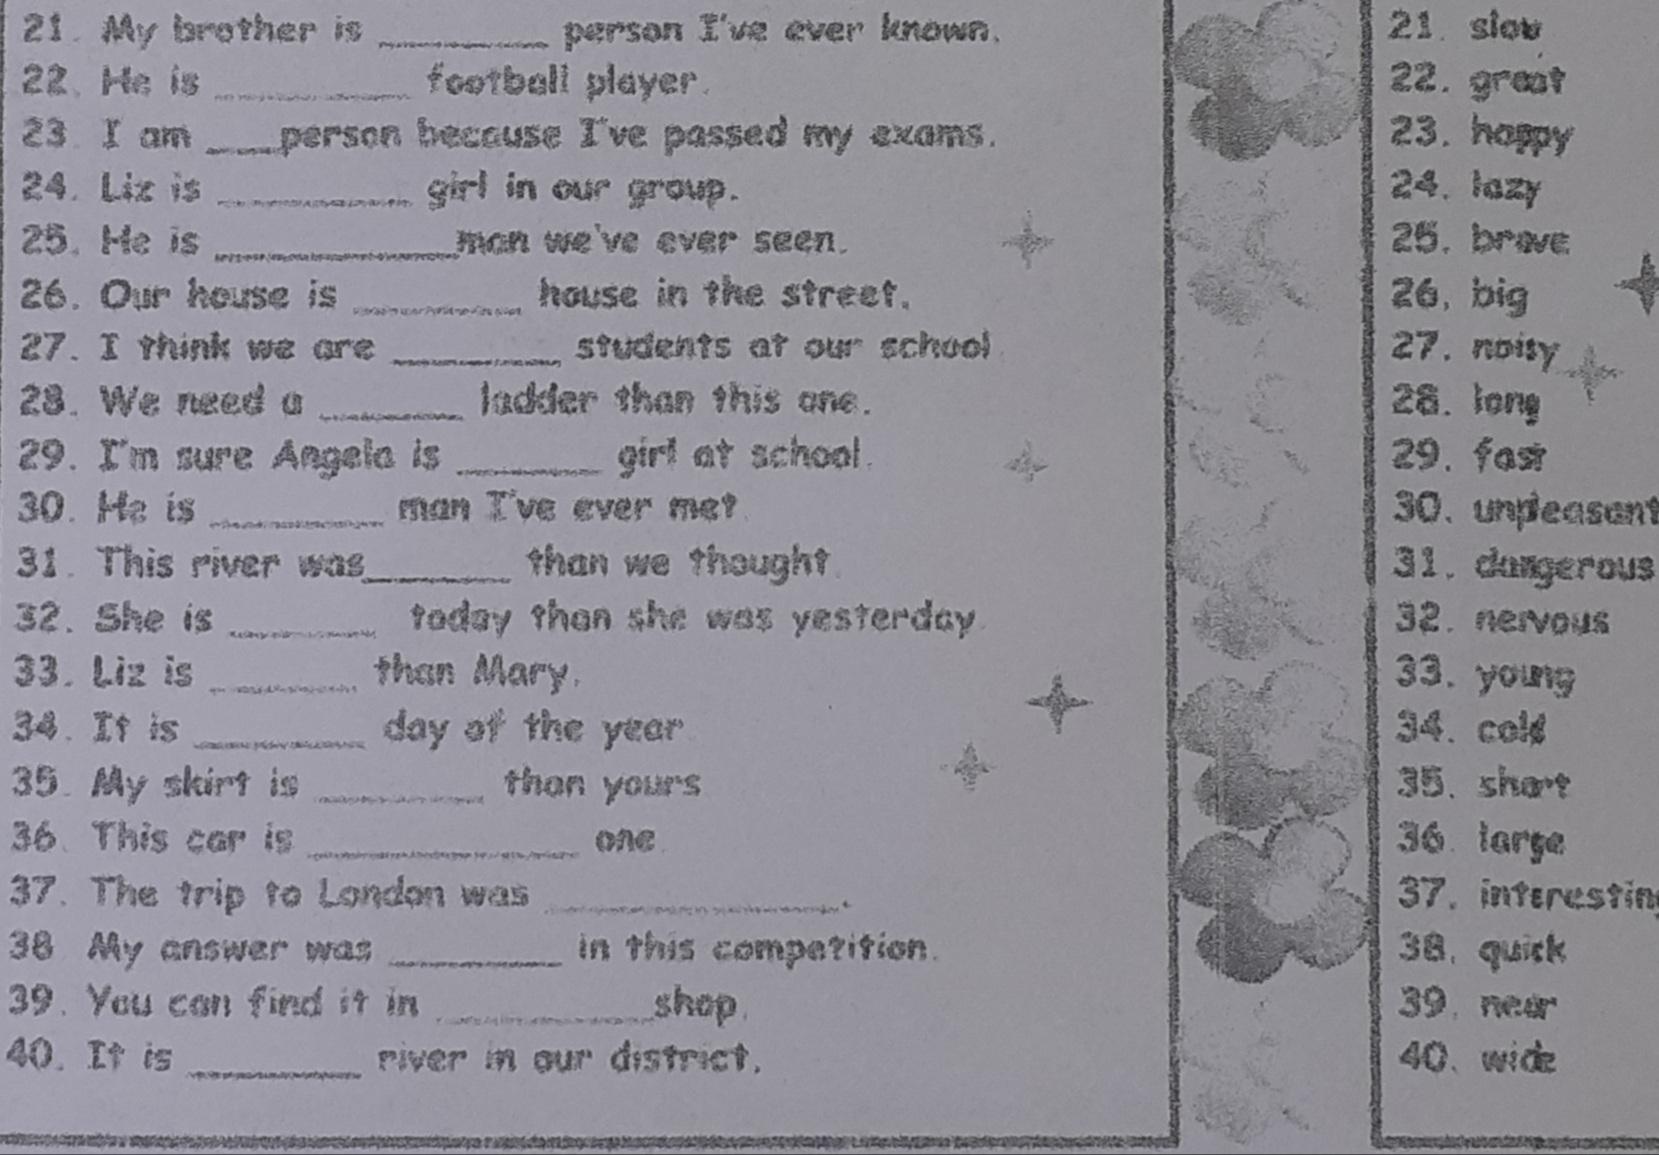 21. My brother is ________ person I've ever known.
22. He is ________ football player.
23. I am ____person because I've passed my exams.
24. Liz is ________ girl in our group.
25. He is ________man we've ever seen.
26. Our house is ________ house in the street.
27. I think we are ________ students at our school
28. We need a ________ ladder than this one.
29. I'm sure Angela is ________ girl at school.
30. He is ________ man I've ever met
31. This river was________ than we thought.
32. She is ________ today than she was yesterday
33. Liz is ________ than Mary.
34. It is ________ day of the year
35. My skirt is ________ than yours
36. This car is ________ one
37. The trip to London was ________.
38 My answer was ________ in this competition.
39. You can find it in ________shop.
40. It is ________ river in our district.
21. slow
22. great
23. happy
24. lazy
25. brave
26. big
27. noisy
28. long
29. fast
30. unpleasant
31. dangerous
32. nervous
33. young
34. cold
35. short
36. large
37. interesting
38. quick
39. near
40. wide